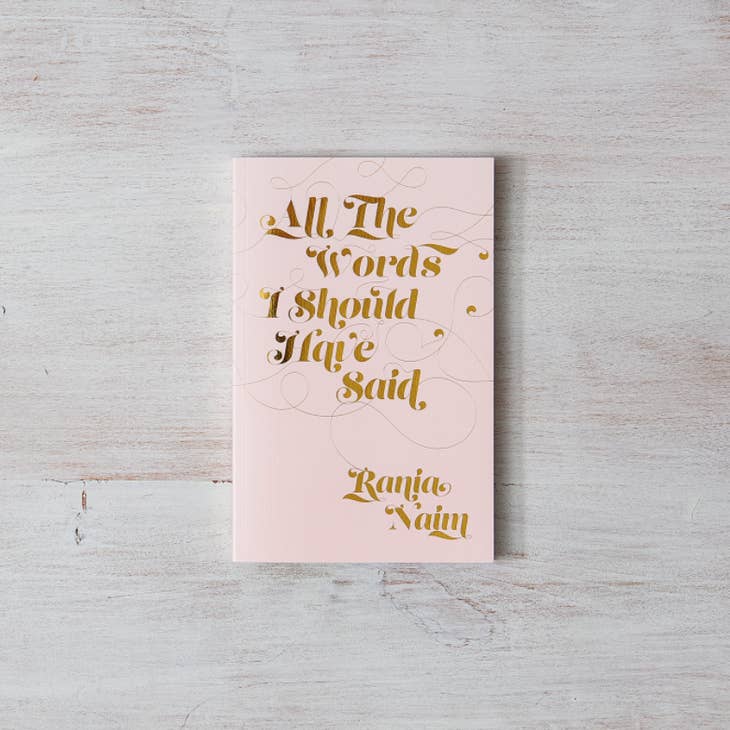 All The
Words
I Should
Have
Said
Rania
Naim